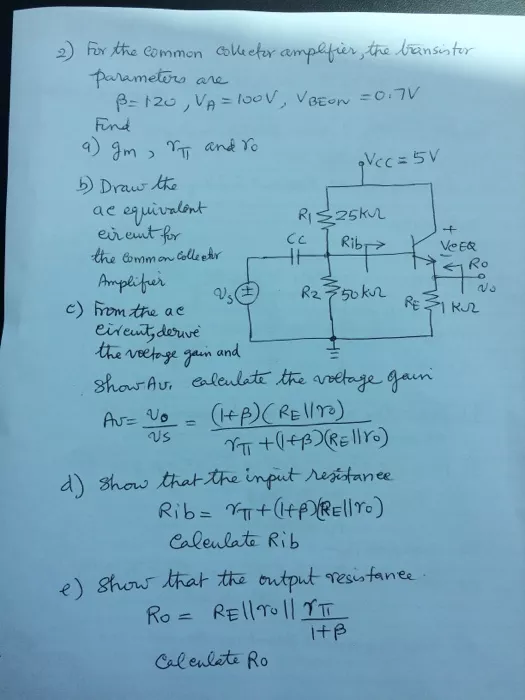 2) For the common collector amplifier, the transistor
parameters are
β = 120, VA = 100V, VBEON = 0.7V
Find
a) gm, rπ and ro
VCC = 5V
b) Draw the
ac equivalent
circuit for
the common collector
Amplifier
R1 25kΩ
CC
Rib
+
VCEQ
-
Ro
vo
vs
R2 50kΩ
RE 1kΩ
c) From the ac
circuit, derive
the voltage gain and
show Av. calculate the voltage gain
Av = vo/vs = (1+β)(RE||ro) / rπ + (1+β)(RE||ro)
d) Show that the input resistance
Rib = rπ + (1+β)(RE||ro)
Calculate Rib
e) Show that the output resistance.
Ro = RE||ro|| rπ/1+β
Calculate Ro